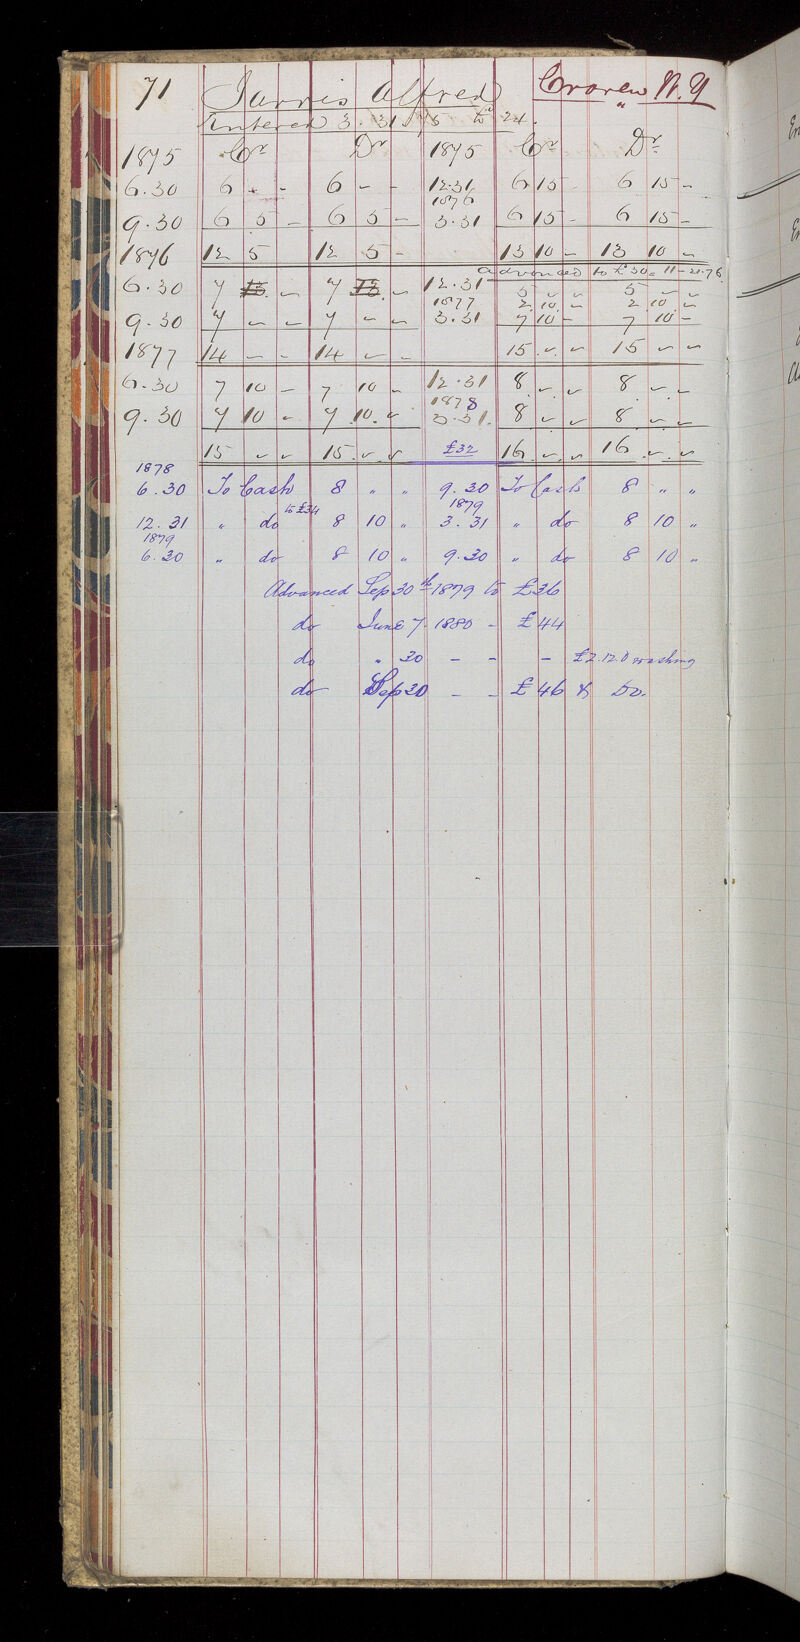 71 Jarvis Alfred Craven W. Y
Entered 3. 31. 75 to 24.
1875 Cr Dr 1875 Cr Dr
6.30 6 - - 6 - - 12.31 6 15 - 6 15 -
1876
9.30 6 5 - 6 5 - 3.31 6 15 - 6 15 -
1876 12 5 12 5 - 13 10 - 13 10 -
advanced to £30. 11-20.76
6.30 7 13 - 7 13 - 12.31 5 - - 5 - -
1877 2 10 - 2 10 -
9.30 7 - - 7 - - 3.31 7 10 - 7 10 -
1877 14 - - 14 - - 15 - - 15 - -
6.30 7 10 - 7 10 - 12.31 8 - - 8 - -
1878
9.30 7 10 - 7 10 - 3.31. 8 - - 8 - -
15 - - 15 - - £32 16 - - 16 - -
1878
6.30 To Cash 8 " " 9.30 To Cash 8 " "
to £34 1879
12.31 " do 8 10 " 3.31 " do 8 10 "
1879
6.30 " do 8 10 " 9.30 " do 8 10 "
Advanced Sep 30th 1879 to £36
do June 7. 1880 - £44
do " 30 - - - £2.12.0 washing
do Sep 30 - - £46 & Do.